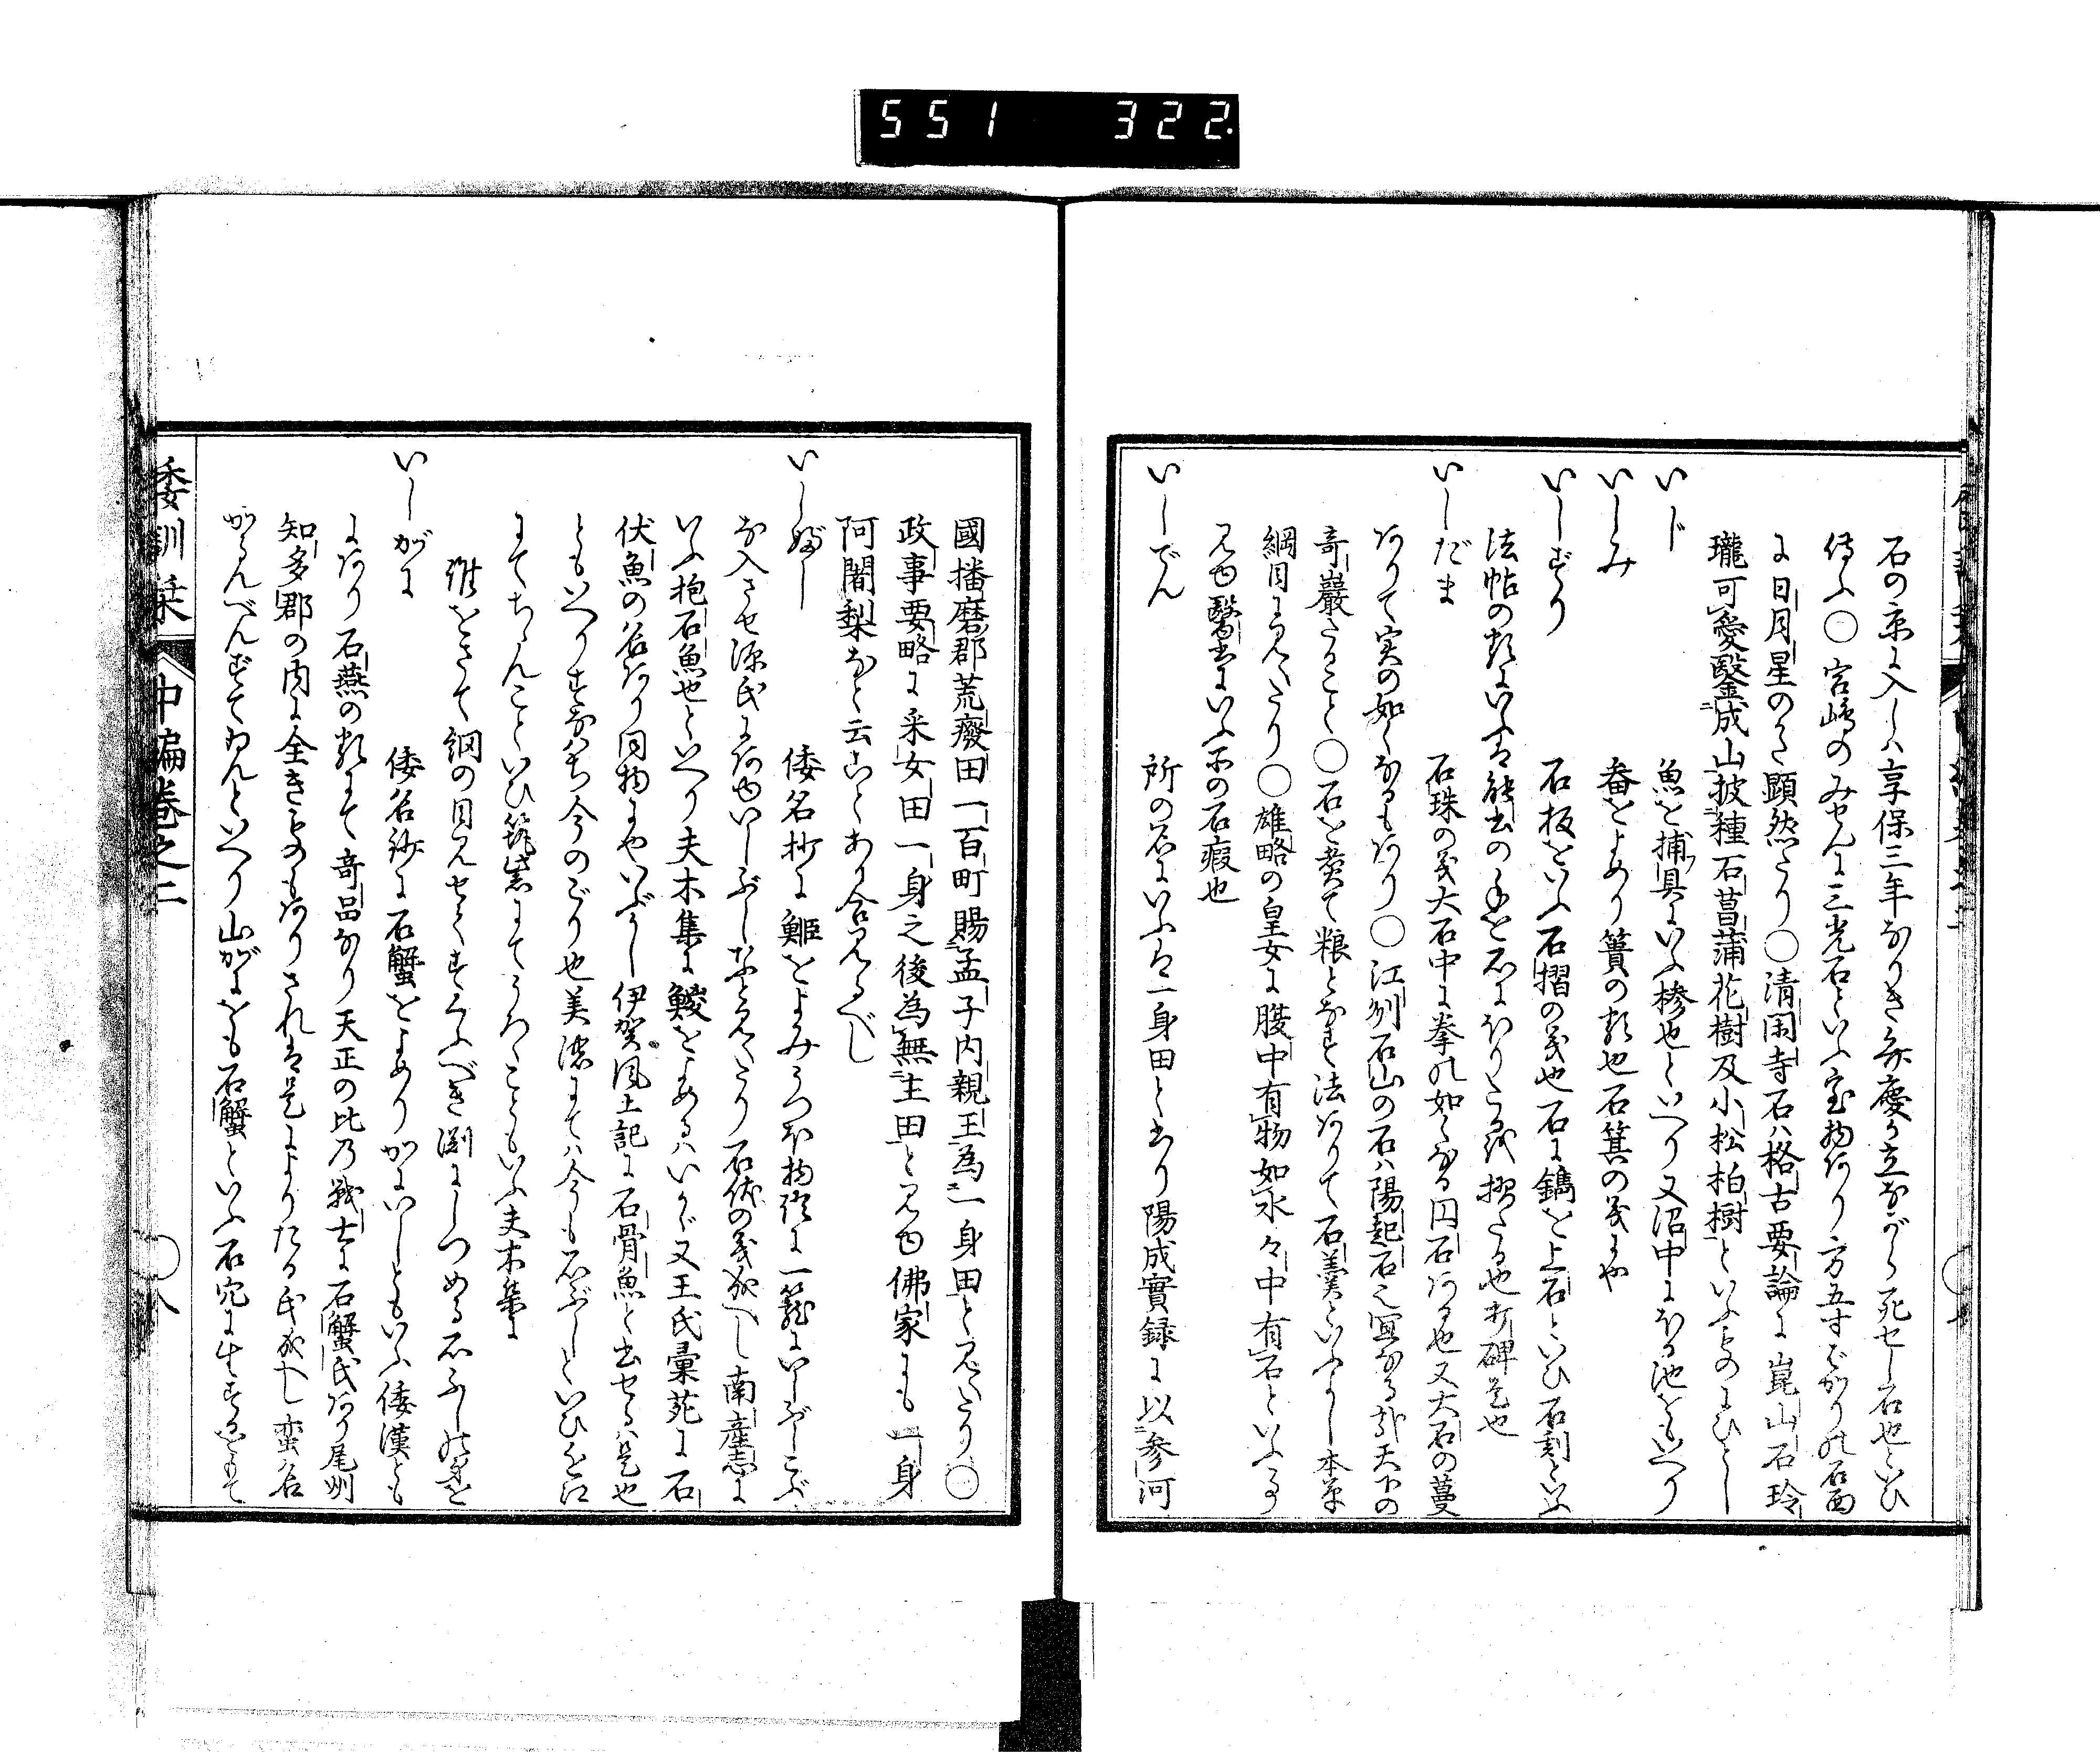 551 322
石の京に入しハ享保三年なりき弁慶か立ながら死せし石也といひ
傳ふ〇宮嶋のみせんに三光石といふ宝物あり方五寸ばかりの石面
に日月星のかた顕然たり〇清閑寺石ハ格古要論に崑山石玲
瓏可愛鑿成山披種石菖蒲花樹及小松柏樹といふものにひとし
いじ 魚を捕具にいふ椮也といへり又沼中にほる池をもいへり
いしみ 畚をよめり簣の類也石箕の義にや
いしずり 石板をいふ石摺の義也石に鐫を上石といひ石刻といふ
法帖の類にいふは能書の手を石にほりたるを摺たる也打碑是也
いしだま 石珠の義大石中に拳の如くなる円石ある也又大石の蔓
ありて実の如くなるもあり〇江州石山の石ハ陽起石之
奇巌たること〇石を煮て粮となす法ありて石羹といふよし本草
綱目に見えたり〇雄略の皇女に腹中有物如水々中有石といふ事
見ゆ醫書にいふ所の石瘕也
いしでん 所の名にいふは一身田と書り陽成實録に以参河
國播磨郡荒癈田一百町賜孟子内親王為一身田と見えたり〇
政事要略に采女田一身之後為無主田と見ゆ佛家にも一身
阿闍梨など云ことあり合見るべし
いしぶし 倭名抄に䱌をよみうつほ物語に一籠にいしぶしこぶ
な入させ源氏にあゆいしぶしなど見えたり石伏の義成へし南産志に
いふ抱石魚也といへり夫木集に鯪をよめるハいかが又王氏彙苑に石
伏魚の名あり同物にやいぶかし伊賀風土記に石骨魚と書せるハ是也
ともいへりすなハち今のごり也美濃にてハ今も石ぶしといひ近江
にてちちんことといひ筑紫にてうろことともいふ夫木集に
誰をさて網の目見せてすくふべき渕にしつめる石ふしの身を
いしがに 倭名鈔に石蟹をよめりかにいしともいふ倭漢とも
にあり石燕の類にて奇品なり天正の比乃戦士に石蟹氏あり尾州
知多郡の内に全きものもありされは是によりたる氏成へし蛮名
がらんべんずてゐんといへり山がにをも石蟹といふ石穴にすすめるをもて
倭訓栞 中編巻之二 〇八